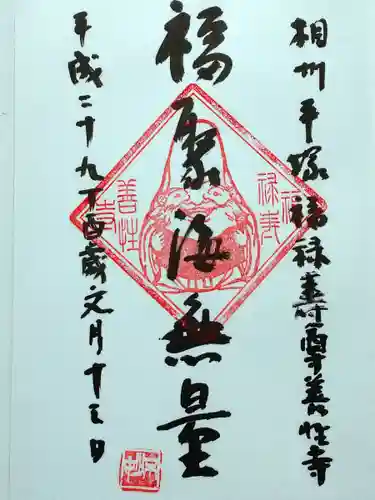 相州平塚福禄寿尊善性寺
福聚海無量
平成二十九丁酉歳文月十三日
福禄寿
善性寺